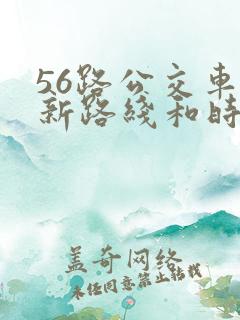 56路公交车
新路线和时
盖奇网络
未经同意禁止转载